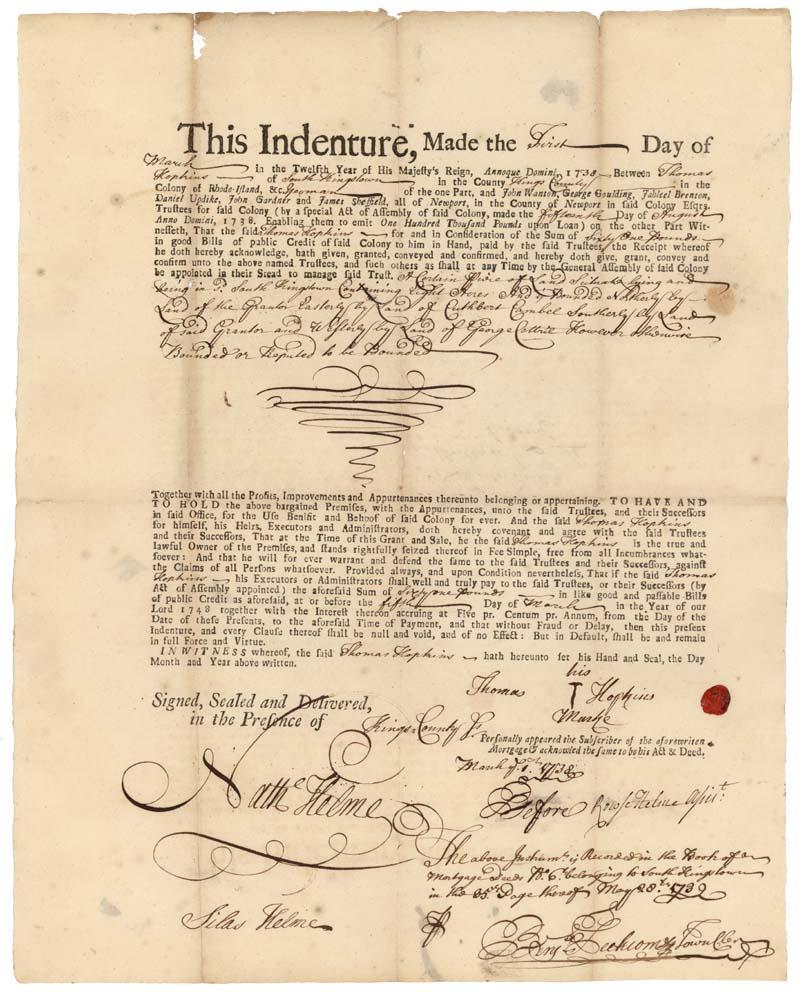 This Indenture, Made the First Day of
March in the Twelfth Year of His Majesty's Reign, Annoque Domini, 1738 Between Thomas
Hopkins of South Kingstown in the County Kings County in the
Colony of Rhode-Island, &c. Yeoman of the one Part, and John Wanton, George Goulding, Jahleel Brenton,
Daniel Updike, John Gardner and James Sheffield, all of Newport, in the County of Newport in said Colony Esqrs.
Trustees for said Colony (by a special Act of Assembly of said Colony, made the fifteenth Day of August
Anno Domini, 1738. Enabling them to emit One Hundred Thousand Pounds upon Loan) on the other Part Wit-
nesseth, That the said Thomas Hopkins for and in Consideration of the Sum of Sixty One Pounds
in good Bills of public Credit of said Colony to him in Hand, paid by the said Trustees, the Receipt whereof
he doth hereby acknowledge, hath given, granted, conveyed and confirmed, and hereby doth give, grant, convey and
confirm unto the above named Trustees, and such others as shall at any Time by the General Assembly of said Colony
be appointed in their Stead to manage said Trust. A Certain Piece of Land Situate Lying and
being in Sd. South Kingstown Containing Eight Acres And is Bounded Northerly by
Land of the Grantor Easterly by Land of Cuthbert Cambel Southerly by Land
of said Grantor and Westerly by Land of George Cottrit However otherwise
Bounded or Reputed to be Bounded
Together with all the Profits, Improvements and Appurtenances thereunto belonging or appertaining. TO HAVE AND
TO HOLD the above bargained Premises, with the Appurtenances, unto the said Trustees, and their Successors
in said Office, for the Use Benifit and Behoof of said Colony for ever. And the said Thomas Hopkins
for himself, his Heirs, Executors and Administrators, doth hereby covenant and agree with the said Trustees
and their Successors, That at the Time of this Grant and Sale, he the said Thomas Hopkins is the true and
lawful Owner of the Premises, and stands rightfully seized thereof in Fee Simple, free from all Incumbrances what-
soever: And that he will for ever warrant and defend the same to the said Trustees and their Successors, against
the Claims of all Persons whatsoever. Provided always, and upon Condition nevertheless, That if the said Thomas
Hopkins his Executors or Administrators shall well and truly pay to the said Trustees, or their Successors (by
Act of Assembly appointed) the aforesaid Sum of Sixty one Pounds in like good and passable Bills
of public Credit as aforesaid, at or before the fifth Day of March in the Year of our
Lord 1748 together with the Interest thereon accruing at Five pr. Centum pr. Annum, from the Day of the
Date of these Presents, to the aforesaid Time of Payment, and that without Fraud or Delay, then this present
Indenture, and every Clause thereof shall be null and void, and of no Effect: But in Default, shall be and remain
in full Force and Virtue.
IN WITNESS whereof, the said Thomas Hopkins hath hereunto set his Hand and Seal, the Day
Month and Year above written.
his
Thomas T Hopkins
Marke
Signed, Sealed and Delivered,
in the Presence of
Kings County Ss.
Personally appeared the Subscriber of the aforewriten
Mortgage & acknowled the same to be his Act & Deed.
March ye. 1st. 1738
Nathe. Helme
Before Rouse Helme Assist.
The above Instrumt. is Recorded in the Book of
Mortgage Deeds No. 6 belonging to South Kingstown
in the 35th. Page thereof May 28th. 1739
Silas Helme
Town Cler